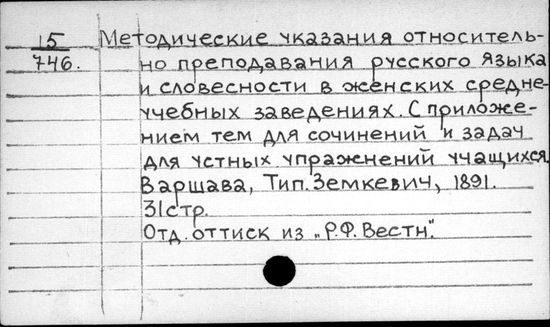 15
746.
Методические указания относитель-
но преподавания русского языка
и словесности в женских средне-
учебных заведениях. С приложе-
нием тем для сочинений и задач
для устных упражнений учащихся.
Варшава, Тип. Земкевич, 1891.
31стр.
Отд. оттиск из „Р.Ф. Вестн."